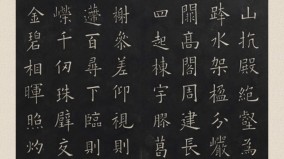 山抗殿絶壑為
跨水架楹分巖
闕高閣周建長
四起棟宇膠葛
榭參差仰視則
遰百尋下臨則
嶸千仞珠璧交
金碧相暉照灼